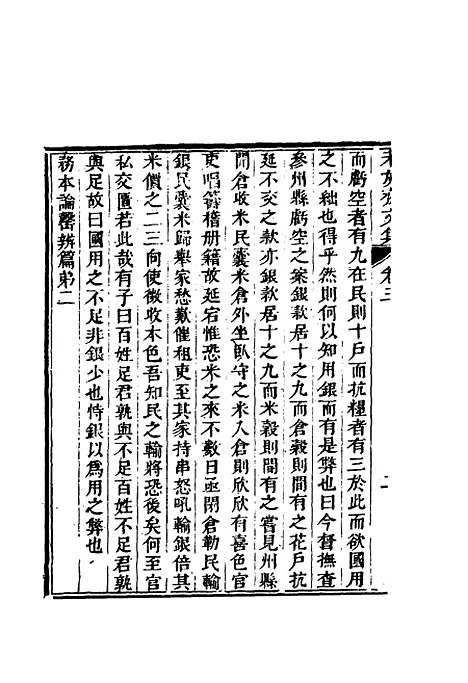 而虧空者有九在民則十戶而抗糧者有三於此而欲國用
之不絀也得乎然則何以知用銀而有是弊也曰今督撫查
參州縣虧空之案銀款居十之九而倉穀則間有之花戶抗
延不交之款亦銀款居十之九而米穀則間有之嘗見州縣
開倉收米民囊米倉外坐臥守之米入倉則欣欣有喜色官
吏唱籌稽册籍故延宕惟恐米之來不數日亟閉倉勒民輸
銀民囊米歸舉家愁歎催租吏至其家持串怒吼輸銀倍其
米價之二三向使徵收本色吾知民之輸將恐後矣何至官
私交匱若此哉有子曰百姓足君孰與不足百姓不足君孰
與足故曰國用之不足非銀少也恃銀以爲用之弊也
務本論罄辨篇弟二
卷三